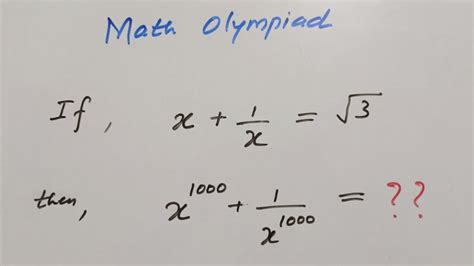 Math Olympiad
If, x + 1/x = √3
then, x^1000 + 1/x^1000 = ??